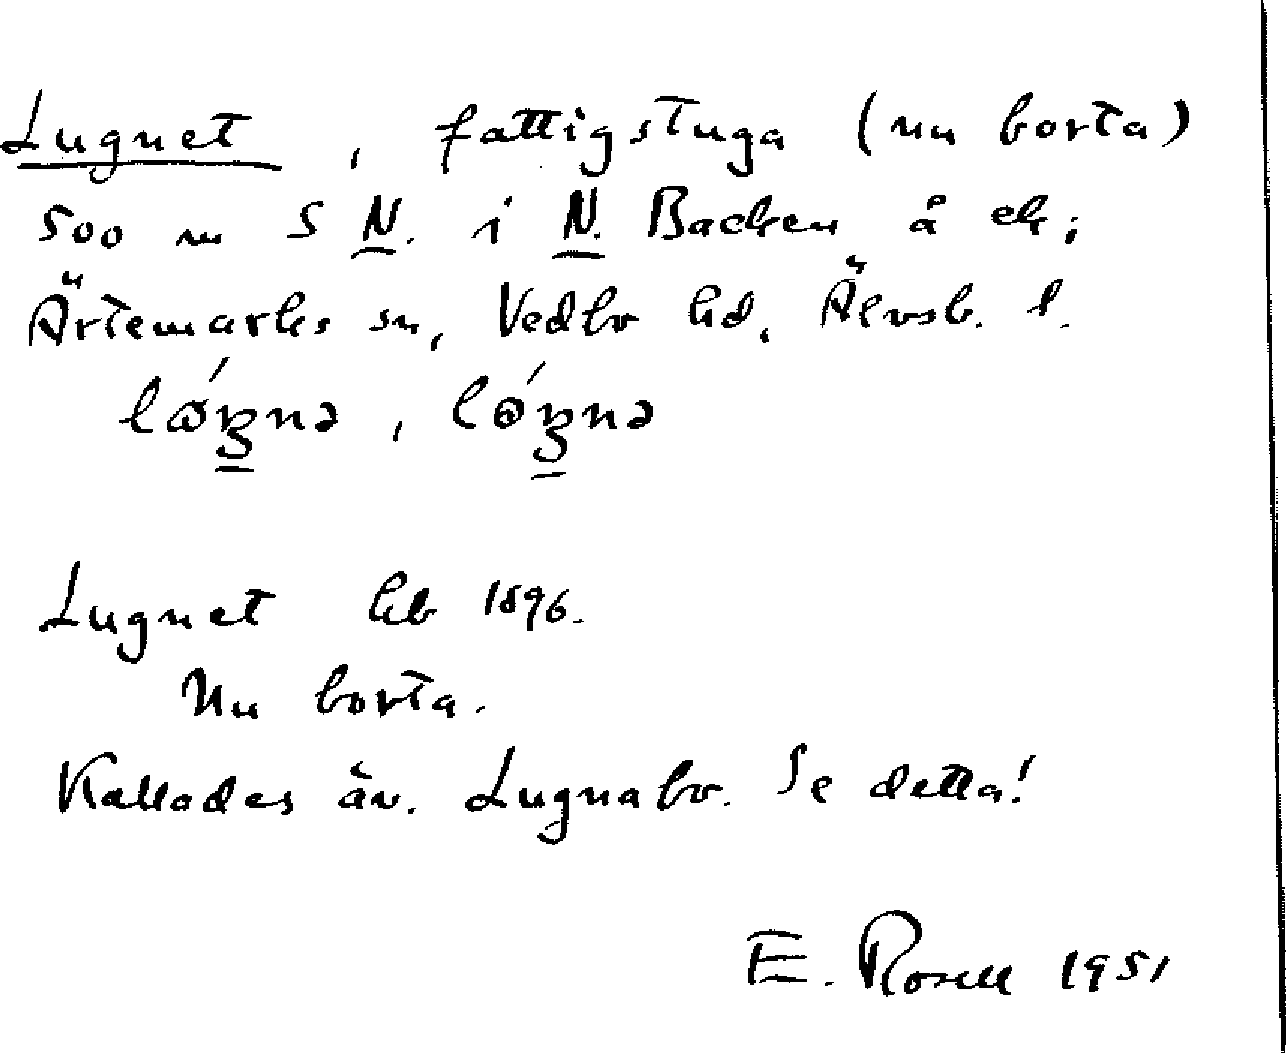 Lugnet, fattigstuga (nu borta)
500 m S N. i N. Backen å ek;
Ärtemarks sn, Vedbo hd, Älvsb. l.
Lugnet hb 1896.
Nu borta.
Kallades äv. Lugnabo. Se detta!
E. Rosell 1951